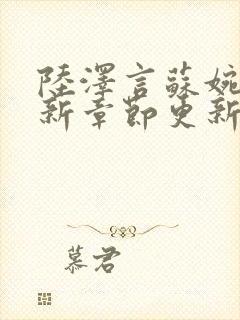 陸澤言蘇婉
新章節更新
慕君